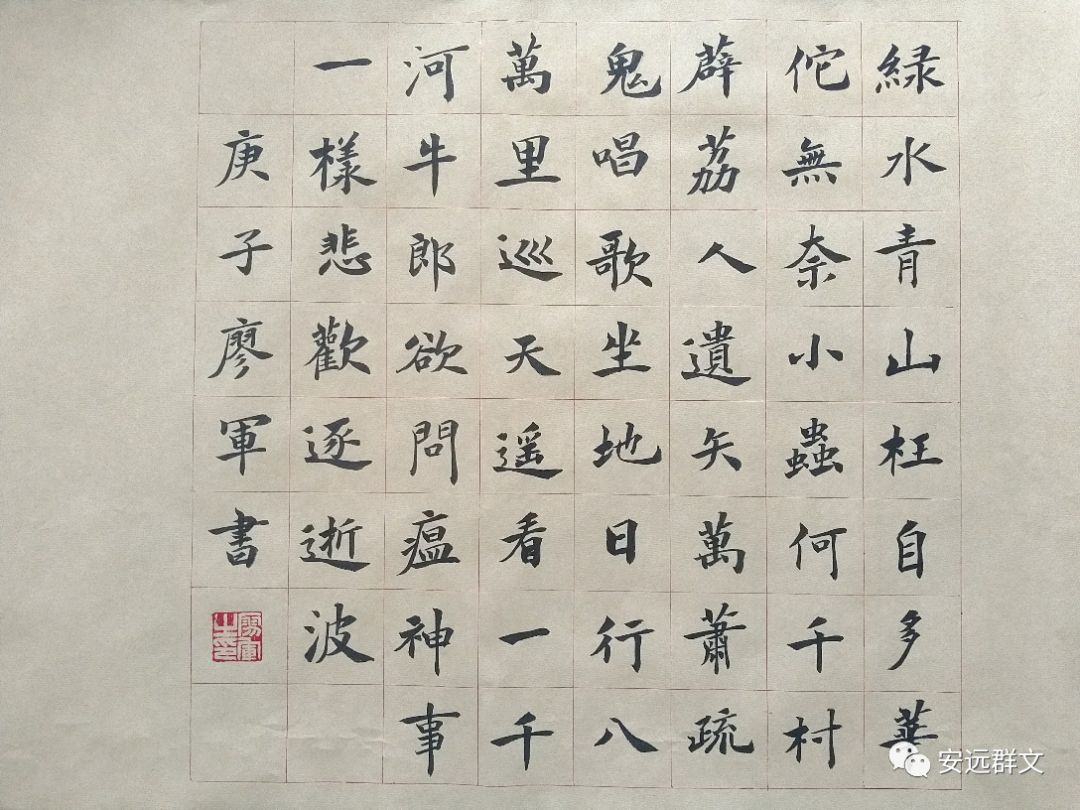 緑水青山枉自多華
佗無奈小蟲何千村
薜荔人遺矢萬蕭疏
鬼唱歌坐地日行八
萬里巡天遥看一千
河牛郎欲問瘟神事
一樣悲歡逐逝波
庚子廖軍書
廖軍之印
安远群文